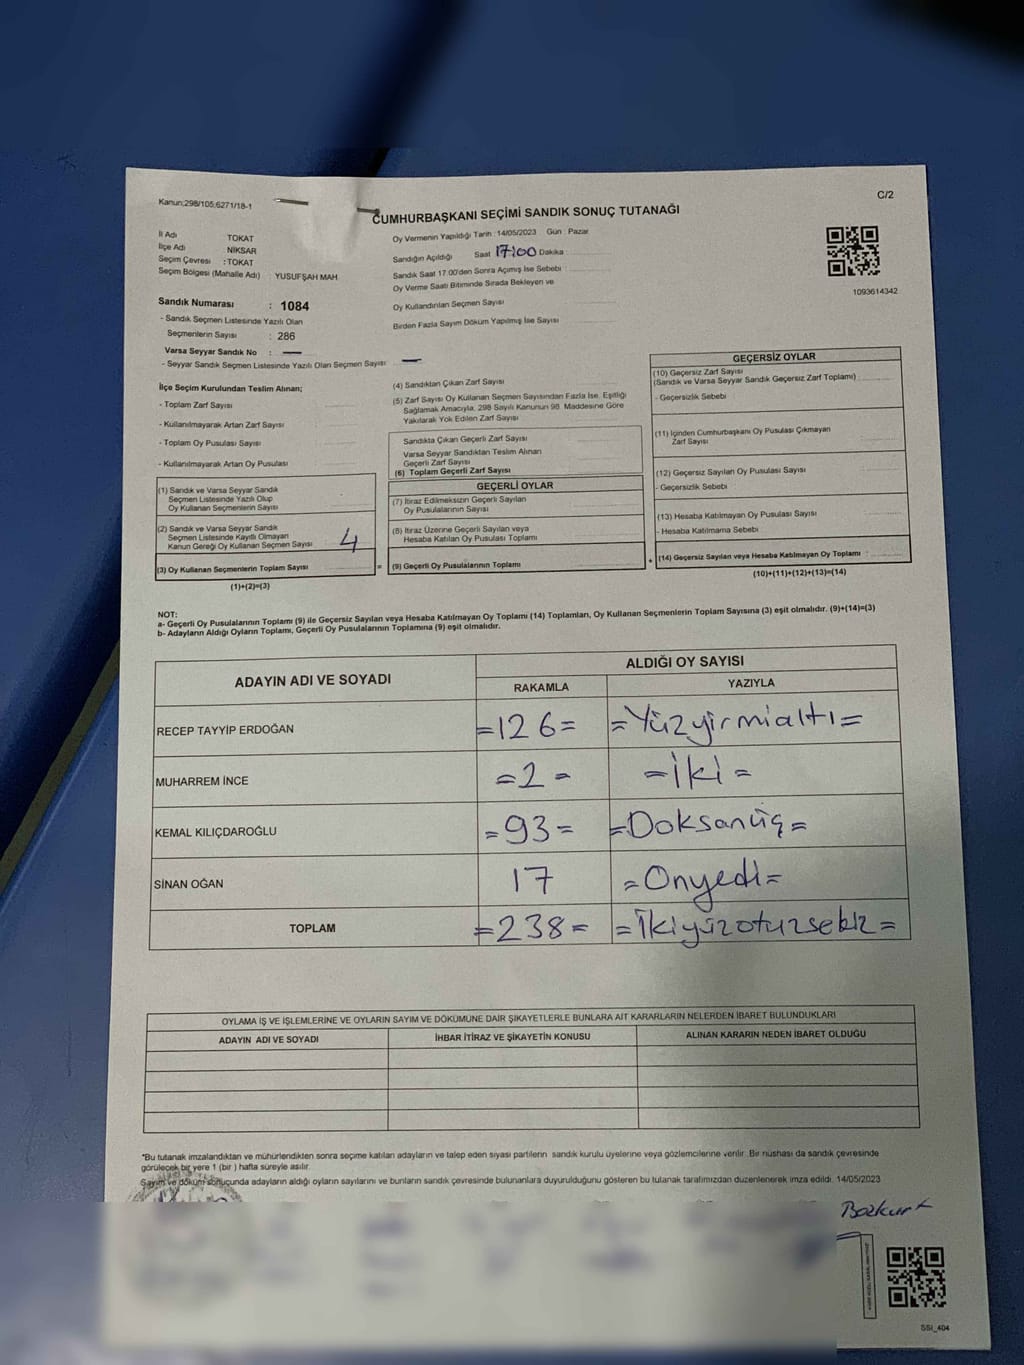 Kanun;298/105;6271/18-1
C/2
CUMHURBAŞKANI SEÇİMİ SANDIK SONUÇ TUTANAĞI
İl Adı TOKAT
İlçe Adı NİKSAR
Seçim Çevresi :TOKAT
Seçim Bölgesi (Mahalle Adı) YUSUFŞAH MAH.
Oy Vermenin Yapıldığı Tarih :14/05/2023 Gün : Pazar
Sandığın Açıldığı Saat 17:00 Dakika
Sandık Saat 17.00'den Sonra Açımış İse Sebebi
Oy Verme Saati Bitiminde Sırada Bekleyen ve
Oy Kullandırılan Seçmen Sayısı
Birden Fazla Sayım Döküm Yapılmış İse Sayısı
1093614342
Sandık Numarası : 1084
- Sandık Seçmen Listesinde Yazılı Olan
Seçmenlerin Sayısı : 286
Varsa Seyyar Sandık No : —
- Seyyar Sandık Seçmen Listesinde Yazılı Olan Seçmen Sayısı —
İlçe Seçim Kurulundan Teslim Alınan;
- Toplam Zarf Sayısı
- Kullanılmayarak Artan Zarf Sayısı
- Toplam Oy Pusulası Sayısı
- Kullanılmayarak Artan Oy Pusulası
(1) Sandık ve Varsa Seyyar Sandık
Seçmen Listesinde Yazılı Olup
Oy Kullanan Seçmenlerin Sayısı
(2) Sandık ve Varsa Seyyar Sandık
Seçmen Listesinde Kayıtlı Olmayan
Kanun Gereği Oy Kullanan Seçmen Sayısı 4
(3) Oy Kullanan Seçmenlerin Toplam Sayısı
(1)+(2)=(3)
(4) Sandıktan Çıkan Zarf Sayısı
(5) Zarf Sayısı Oy Kullanan Seçmen Sayısından Fazla İse, Eşitliği
Sağlamak Amacıyla, 298 Sayılı Kanunun 98. Maddesine Göre
Yakılarak Yok Edilen Zarf Sayısı
Sandıkta Çıkan Geçerli Zarf Sayısı
Varsa Seyyar Sandıktan Teslim Alınan
Geçerli Zarf Sayısı
(6) Toplam Geçerli Zarf Sayısı
GEÇERLİ OYLAR
(7) İtiraz Edilmeksizin Geçerli Sayılan
Oy Pusulalarının Sayısı
(8) İtiraz Üzerine Geçerli Sayılan veya
Hesaba Katılan Oy Pusulası Toplamı
= (9) Geçerli Oy Pusulalarının Toplamı
GEÇERSİZ OYLAR
(10) Geçersiz Zarf Sayısı
(Sandık ve Varsa Seyyar Sandık Geçersiz Zarf Toplamı)
- Geçersizlik Sebebi
(11) İçinden Cumhurbaşkanı Oy Pusulası Çıkmayan
Zarf Sayısı
(12) Geçersiz Sayılan Oy Pusulası Sayısı
- Geçersizlik Sebebi
(13) Hesaba Katılmayan Oy Pusulası Sayısı
- Hesaba Katılmama Sebebi
+ (14) Geçersiz Sayılan veya Hesaba Katılmayan Oy Toplamı :
(10)+(11)+(12)+(13)=(14)
NOT:
a- Geçerli Oy Pusulalarının Toplamı (9) ile Geçersiz Sayılan veya Hesaba Katılmayan Oy Toplamı (14) Toplamları, Oy Kullanan Seçmenlerin Toplam Sayısına (3) eşit olmalıdır. (9)+(14)=(3)
b- Adayların Aldığı Oyların Toplamı, Geçerli Oy Pusulalarının Toplamına (9) eşit olmalıdır.
ADAYIN ADI VE SOYADI
ALDIĞI OY SAYISI
RAKAMLA YAZIYLA
RECEP TAYYİP ERDOĞAN =126= =Yüzyirmialtı=
MUHARREM İNCE =2= =İki=
KEMAL KILIÇDAROĞLU =93= =Doksanüç=
SİNAN OĞAN 17 =Onyedi=
TOPLAM =238= =İkiyüzotuzsekiz=
OYLAMA İŞ VE İŞLEMLERİNE VE OYLARIN SAYIM VE DÖKÜMÜNE DAİR ŞİKAYETLERLE BUNLARA AİT KARARLARIN NELERDEN İBARET BULUNDUKLARI
ADAYIN ADI VE SOYADI İHBAR İTİRAZ VE ŞİKAYETİN KONUSU ALINAN KARARIN NEDEN İBARET OLDUĞU
"Bu tutanak imzalandıktan ve mühürlendikten sonra seçime katılan adayların ve talep eden siyasi partilerin sandık kurulu üyelerine veya gözlemcilerine verilir. Bir nüshası da sandık çevresinde
görülecek bir yere 1 (bir ) hafta süreyle asılır.
Sayım ve döküm sonucunda adayların aldığı oyların sayılarını ve bunların sandık çevresinde bulunanlara duyurulduğunu gösteren bu tutanak tarafımızdan düzenlenerek imza edildi. 14/05/2023
Bozkurt
SSİ_404